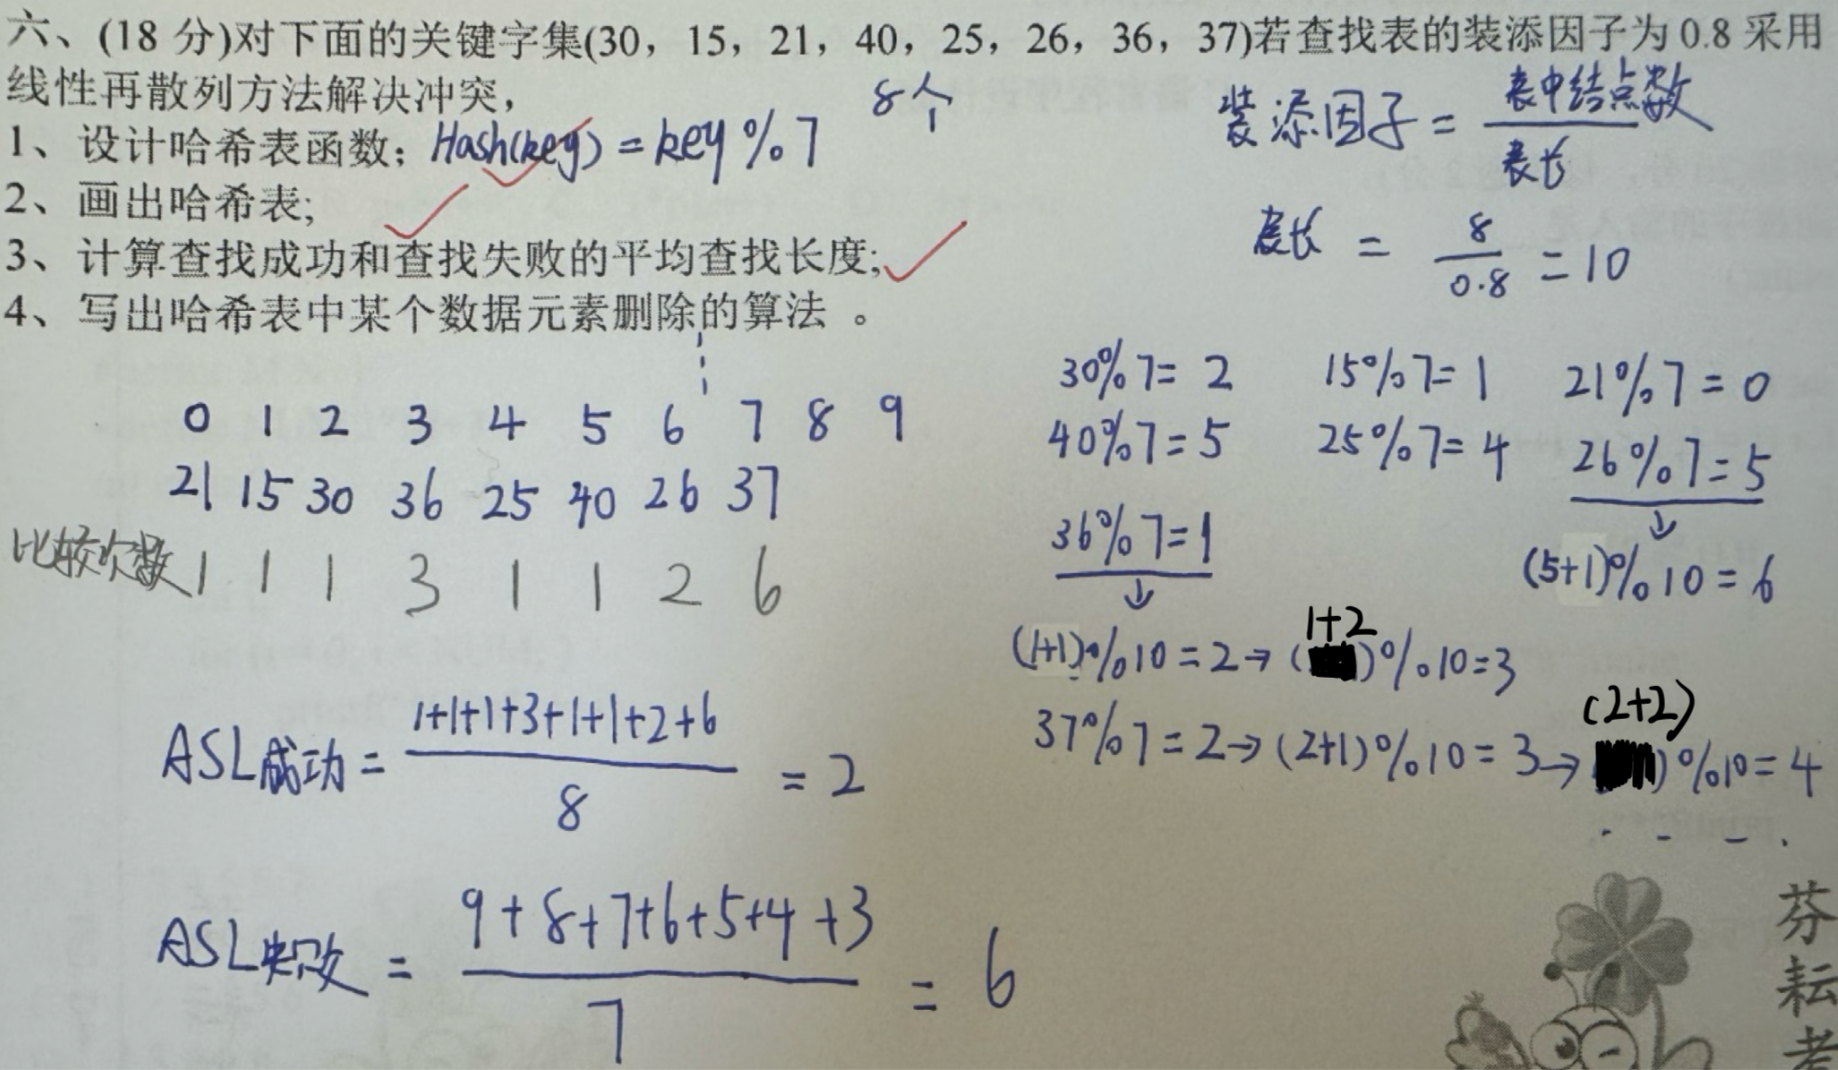 六、(18 分)对下面的关键字集(30，15，21，40，25，26，36，37)若查找表的装添因子为 0.8 采用
线性再散列方法解决冲突，
8个
装添因子 = 表中结点数 / 表长
1、设计哈希表函数；Hash(key) = key % 7
2、画出哈希表;
表长 = 8 / 0.8 = 10
3、计算查找成功和查找失败的平均查找长度;
4、写出哈希表中某个数据元素删除的算法 。
0 1 2 3 4 5 6 7 8 9
21 15 30 36 25 40 26 37
比较次数 1 1 1 3 1 1 2 6
30%7= 2 15%7= 1 21%7 = 0
40%7=5 25%7= 4 26%7=5
36%7=1
(5+1)%10 = 6
1+2
(1+1)%10 = 2→ ( )%10=3
(2+2)
37%7=2→(2+1)%10=3→ )%10=4
ASL成功 = 1+1+1+3+1+1+2+6 / 8 = 2
ASL失败 = 9+8+7+6+5+4+3 / 7 = 6
芬
耘
考